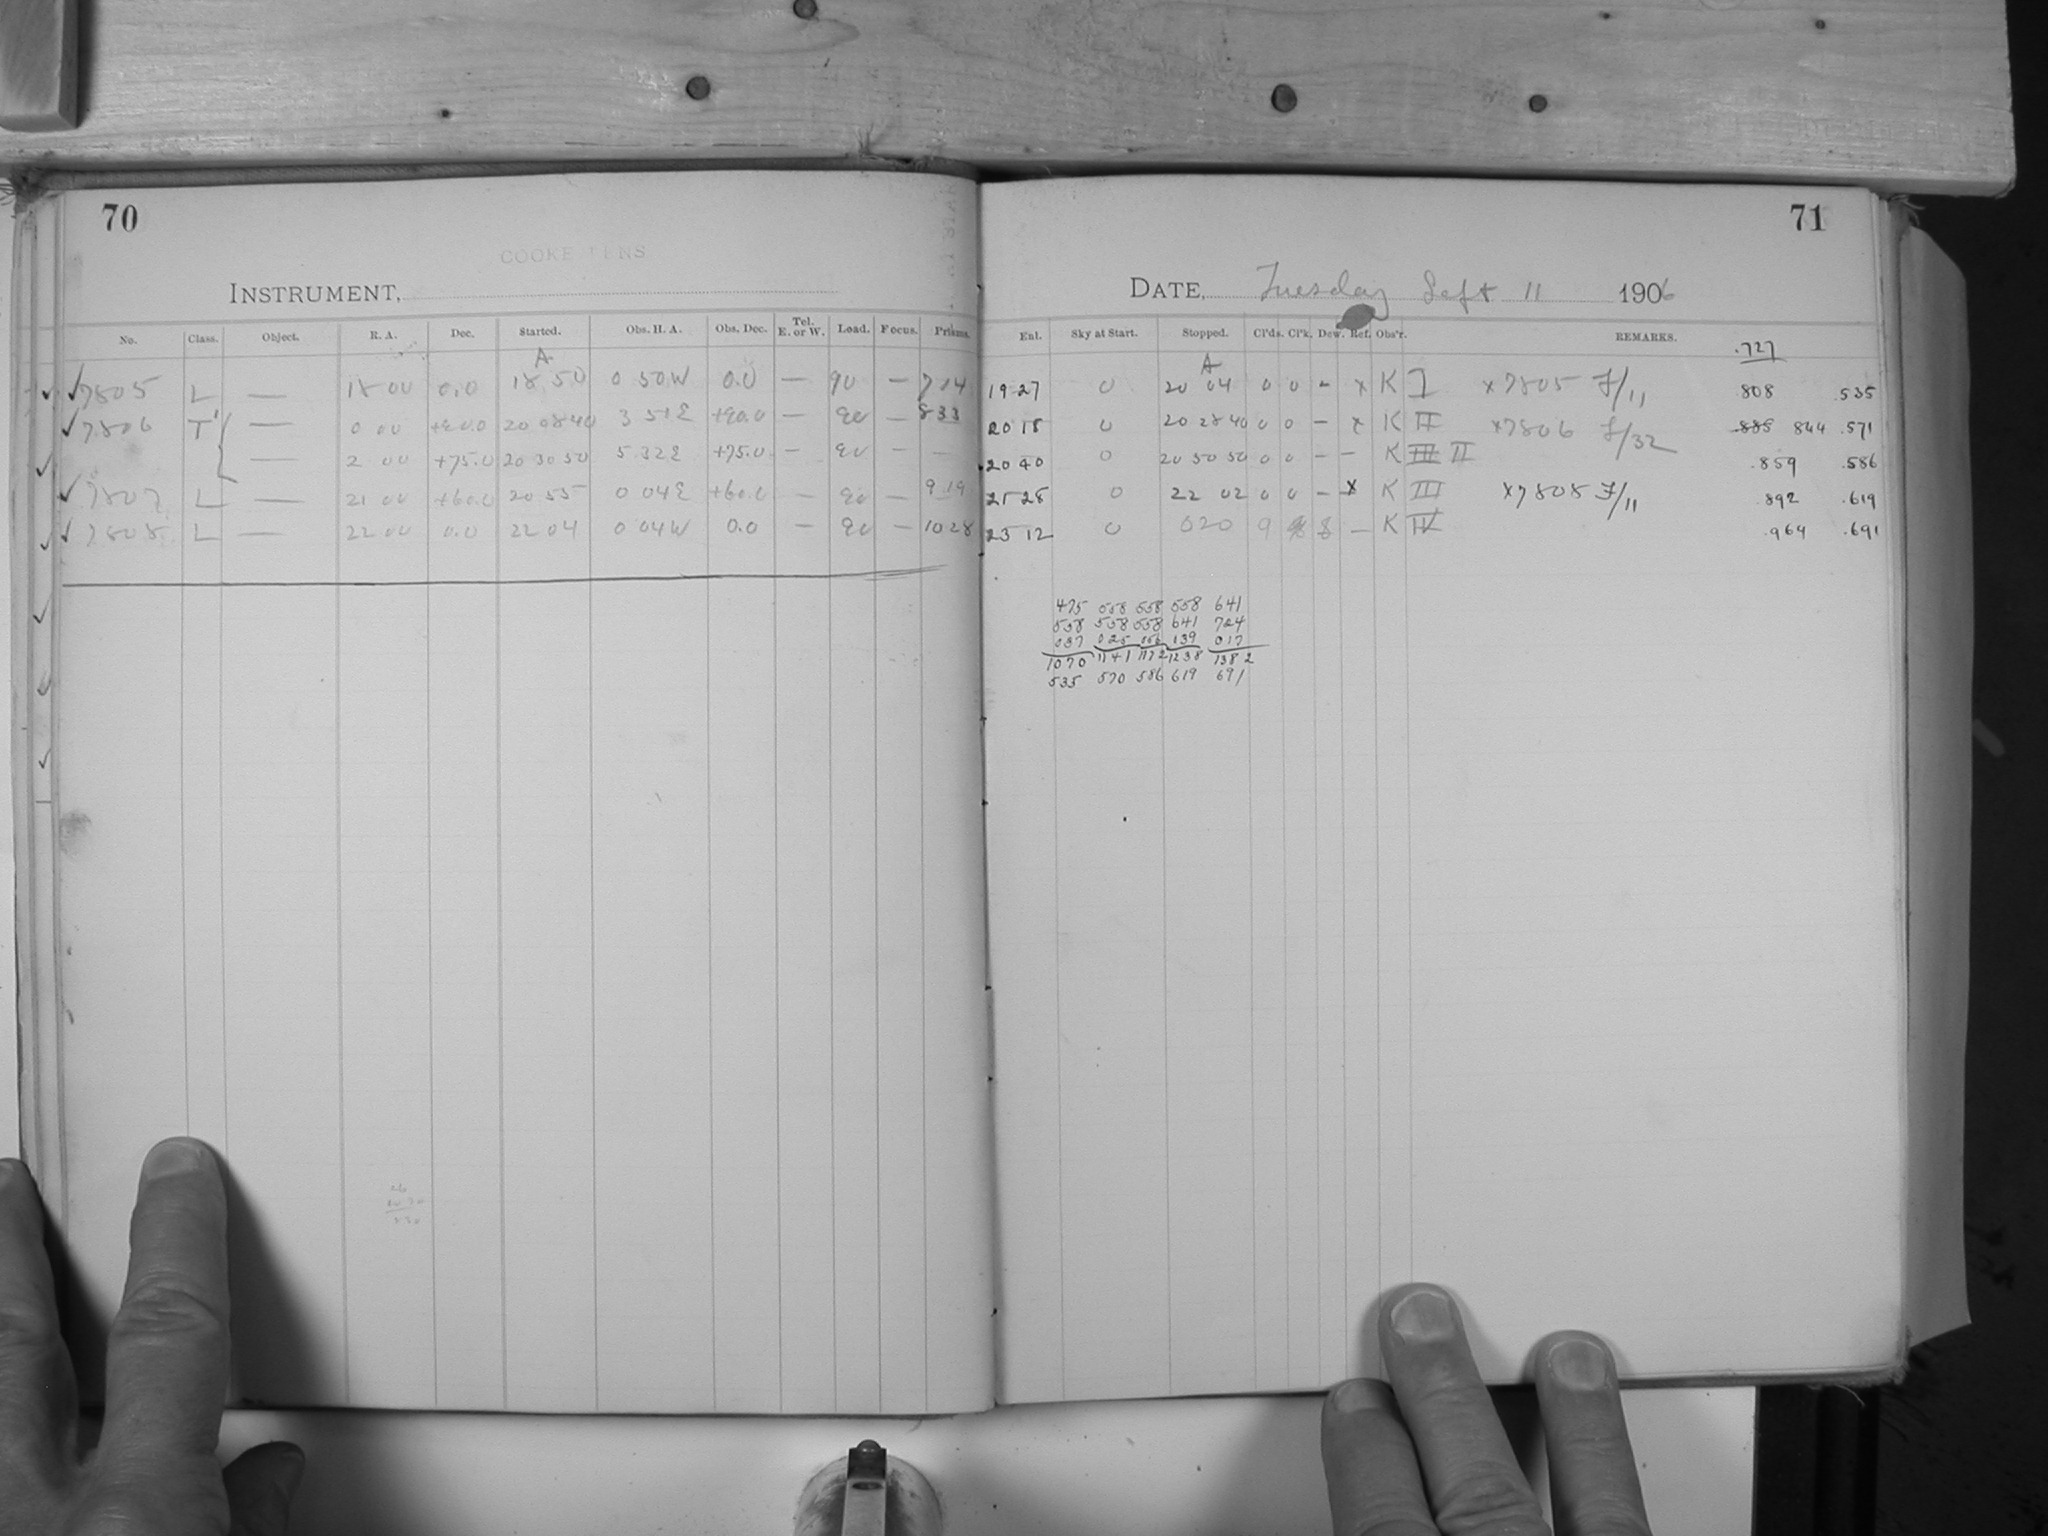 70
COOKE LENS
INSTRUMENT,
No. Class. Object. R. A. Dec. Started. Obs. H. A. Obs. Dec. Tel. E. or W. Load. Focus. Prisms.
A
✓7805 L — 18 00 0.0 18 50 0 50 W 0.0 — 90 — 714
✓7806 T' 0 00 +90.0 20 08 40 3 51 E +90.0 — 90 — 833
— 2 00 +75.0 20 30 50 5 32 E +75.0 — 90 — —
✓7807 L — 21 00 +60.0 20 55 0 04 E +60.0 — 90 — 919
✓7808 L — 22 00 0.0 22 04 0 04 W 0.0 — 90 — 1028
71
DATE, Tuesday Sept 11 1906
Enl. Sky at Start. Stopped. Cl'ds. Cl'k. Dew. Ref. Obs'r. REMARKS.
.727
A
19 27 0 20 04 0 0 - x K I x7805 F/11 .808 .535
20 18 0 20 28 40 0 0 - x K II x7806 F/32 .885 844 .571
20 40 0 20 50 50 0 0 - - K III II .859 .586
21 28 0 22 02 0 0 - x K III x7808 F/11 .892 .619
23 12 0 0 20 9 8 8 - K IV .964 .691
475 558 558 558 641
558 558 558 641 724
037 025 056 039 017
1070 1141 1172 1238 1382
535 570 586 619 691